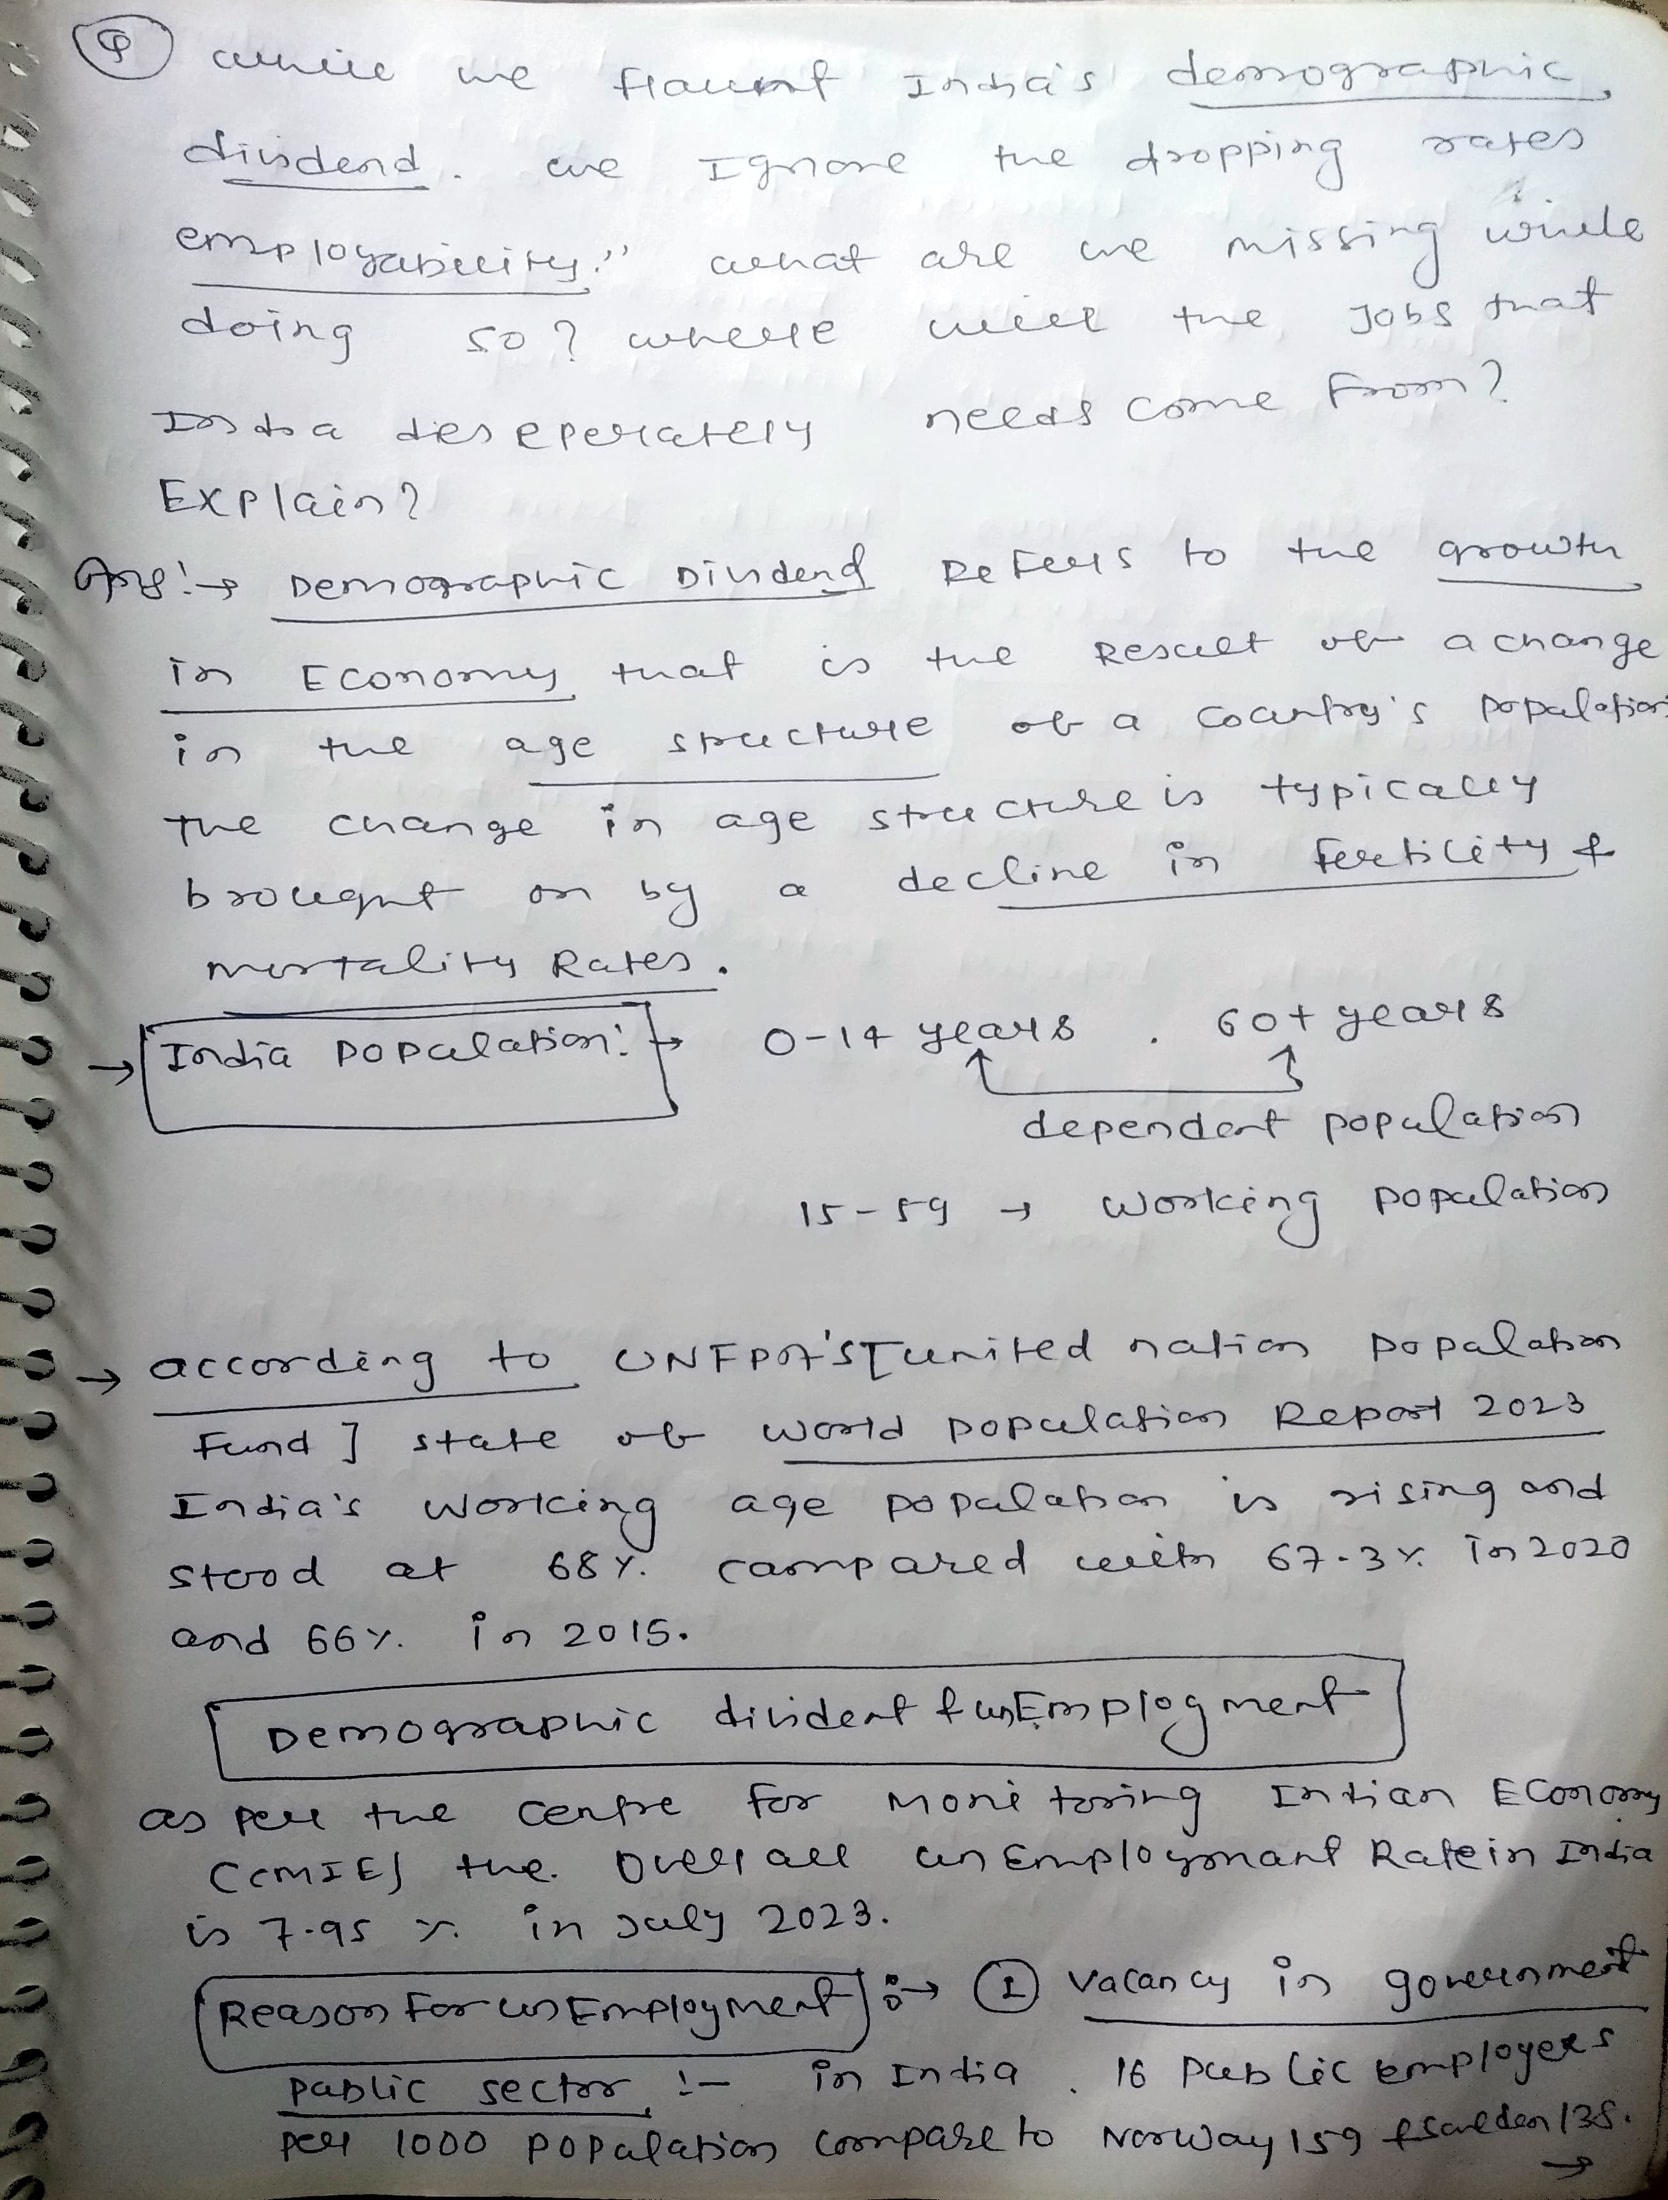 Q while we flaunt India's demographic
dividend. we Ignore the dropping rates
employability." what are we missing while
doing so? where will the Jobs that
India deseperately needs come from?
Explain?
Ans:→ Demographic Dividend Refers to the growth
in Economy that is the Result of a change
in the age structure of a country's population
The change in age structure is typically
brought on by a decline in fertility &
mortality Rates.
→ India population:→ 0-14 years . 60+ years
dependent population
15-59 → working population
→ according to UNFPA'S [united nation population
Fund] state of world population Report 2023
India's working age population is rising and
stood at 68%. compared with 67.3%. in 2020
and 66%. in 2015.
Demographic divident & unEmployment
as per the centre for monitoring Indian Economy
(CMIE) the. overall unEmploymant Rate in India
is 7.95 %. in July 2023.
Reason for unEmployment :→ (1) vacancy in government
public sector :- in India . 16 public employees
per 1000 population compare to Norway 159 & Sweden 138.
→